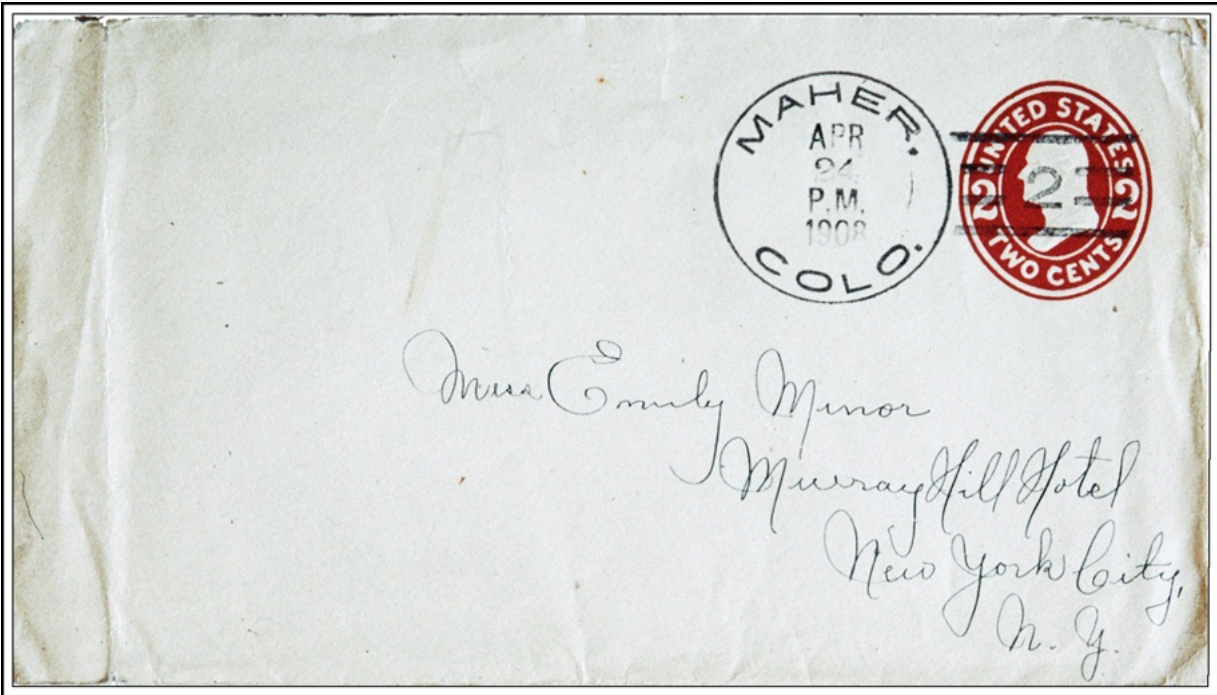 MAHER.
APR
24
P.M.
1908
COLO.
UNITED STATES
2 2 2
TWO CENTS
Miss Emily Minor
Murray Hill Hotel
New York City,
N. Y.